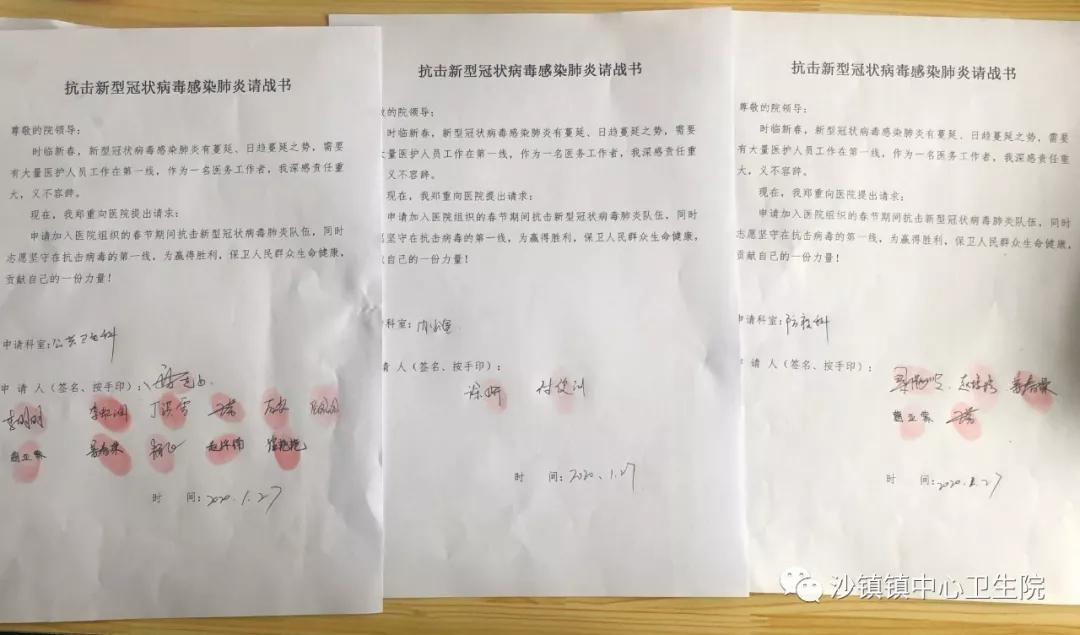 抗击新型冠状病毒感染肺炎请战书
尊敬的院领导：
时临新春，新型冠状病毒感染肺炎有蔓延、日趋蔓延之势，需要
有大量医护人员工作在第一线，作为一名医务工作者，我深感责任重
大，义不容辞。
现在，我郑重向医院提出请求：
申请加入医院组织的春节期间抗击新型冠状病毒肺炎队伍，同时
志愿坚守在抗击病毒的第一线，为赢得胜利，保卫人民群众生命健康，
贡献自己的一份力量！
申请科室：公共卫生科
申 请 人（签名、按手印）：
李明明
丁洪雪
时 间：2020.1.27
抗击新型冠状病毒感染肺炎请战书
敬的院领导：
时临新春，新型冠状病毒感染肺炎有蔓延、日趋蔓延之势，需要
大量医护人员工作在第一线，作为一名医务工作者，我深感责任重
义不容辞。
现在，我郑重向医院提出请求：
申请加入医院组织的春节期间抗击新型冠状病毒肺炎队伍，同时
愿坚守在抗击病毒的第一线，为赢得胜利，保卫人民群众生命健康，
献自己的一份力量！
科室：
请 人（签名、按手印）：
时 间：2020.1.27
抗击新型冠状病毒感染肺炎请战书
尊敬的院领导：
时临新春，新型冠状病毒感染肺炎有蔓延、日趋蔓延之势，需要
有大量医护人员工作在第一线，作为一名医务工作者，我深感责任重
大，义不容辞。
现在，我郑重向医院提出请求：
申请加入医院组织的春节期间抗击新型冠状病毒肺炎队伍，同时
志愿坚守在抗击病毒的第一线，为赢得胜利，保卫人民群众生命健康，
贡献自己的一份力量！
申请科室：防疫科
申 请 人（签名、按手印）：
时 间：2020.1.27
沙镇镇中心卫生院